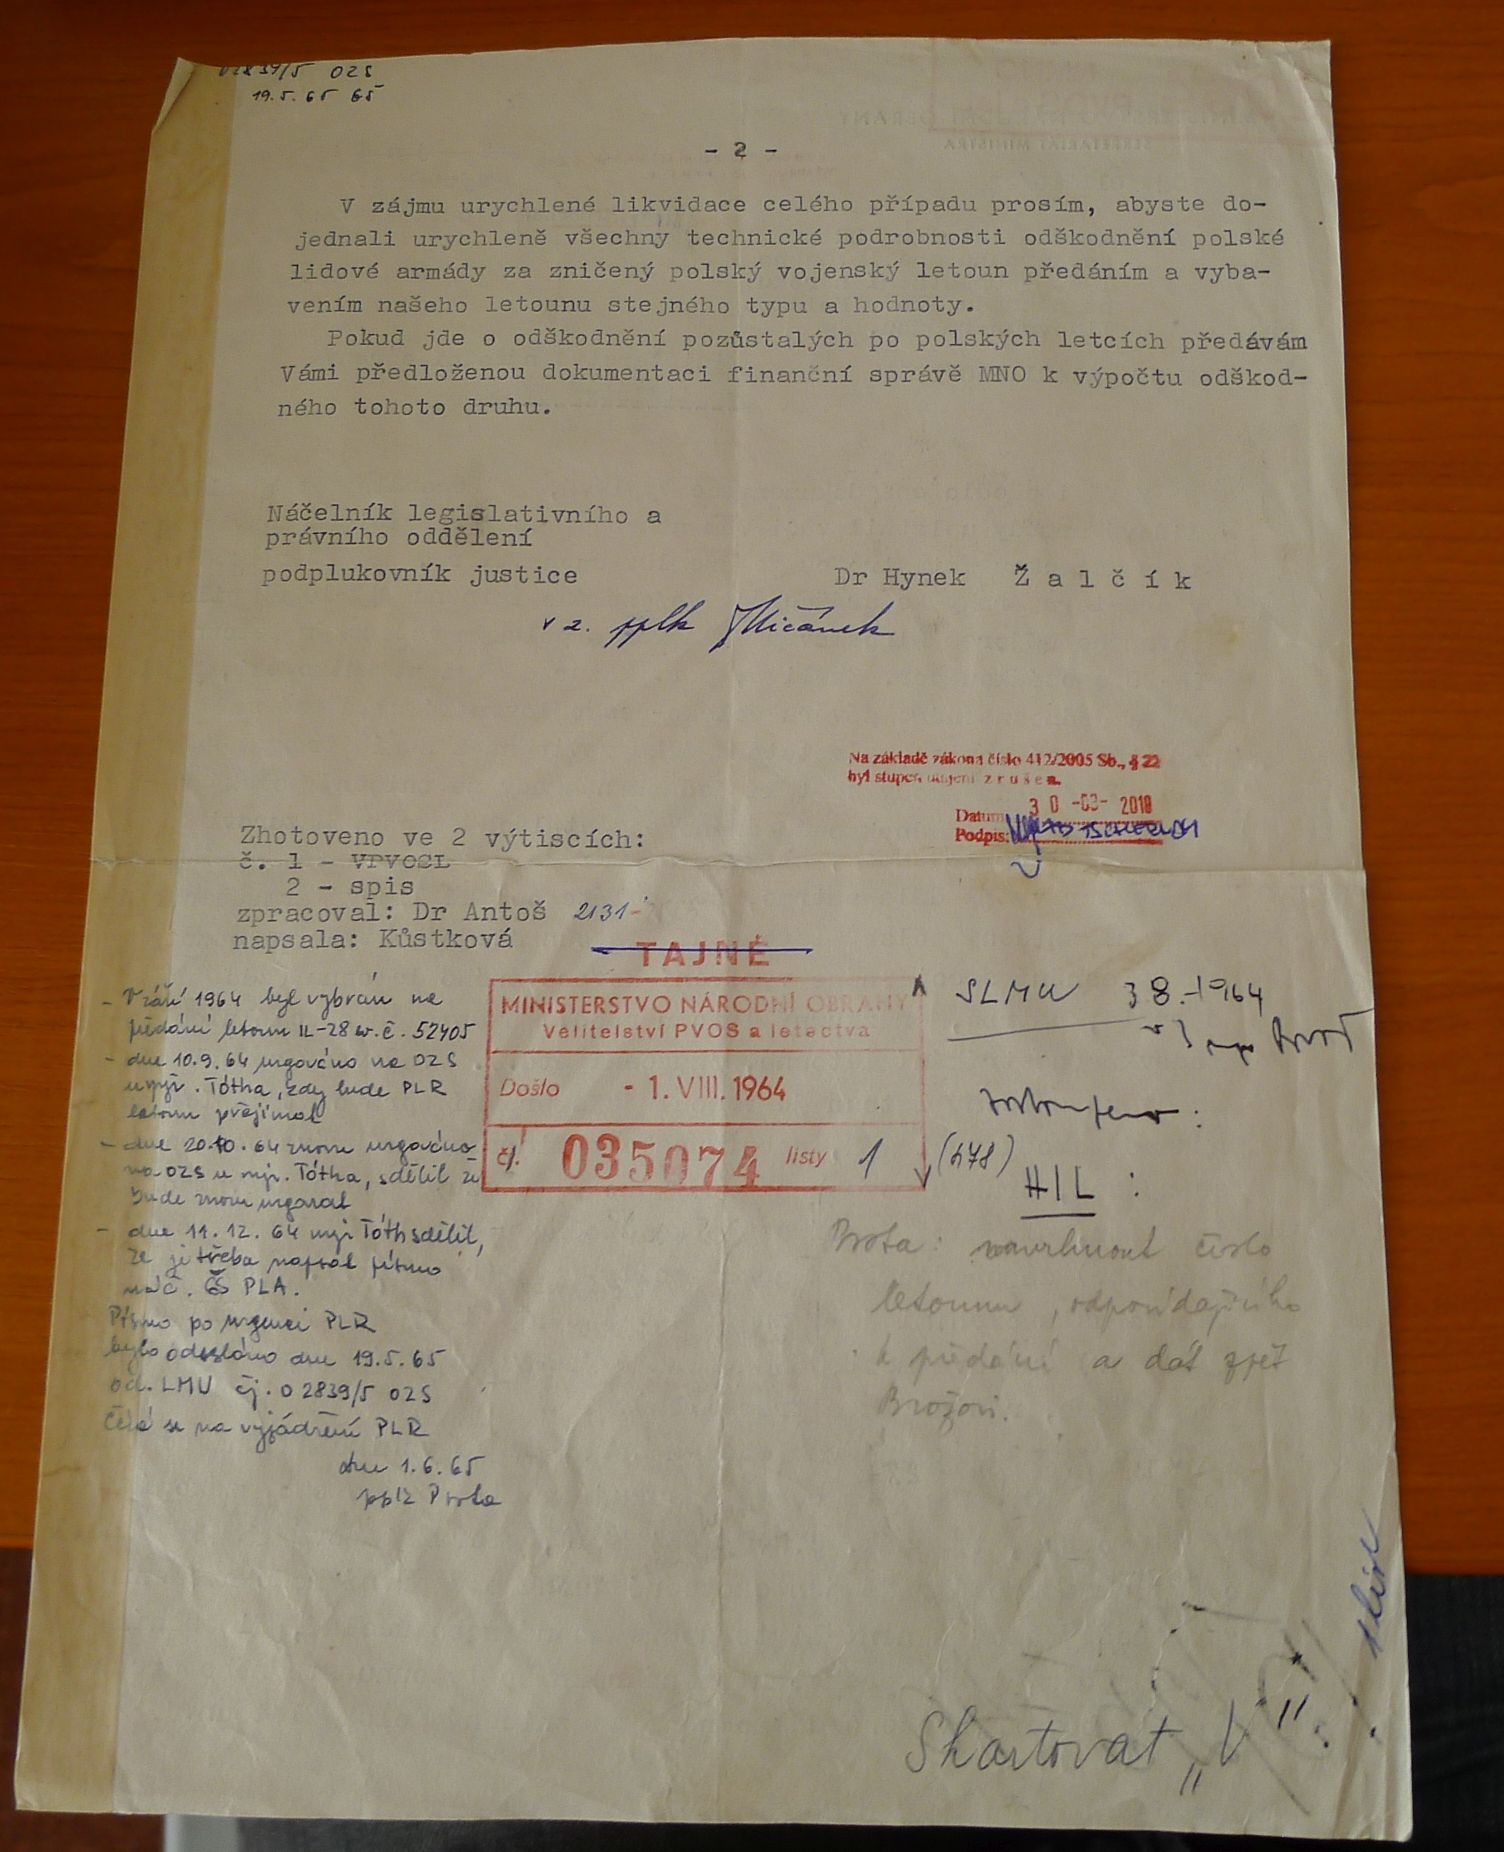 02839/5 OZS
19.5.65 65
- 2 -
V zájmu urychlené likvidace celého případu prosím, abyste do-
jednali urychleně všechny technické podrobnosti odškodnění polské
lidové armády za zničený polský vojenský letoun předáním a vyba-
vením našeho letounu stejného typu a hodnoty.
Pokud jde o odškodnění pozůstalých po polských letcích předávám
Vámi předloženou dokumentaci finanční správě MNO k výpočtu odškod-
ného tohoto druhu.
Náčelník legislativního a
právního oddělení
podplukovník justice
Dr Hynek Žalčík
v z. pplk
Na základě zákona číslo 412/2005 Sb., § 22
byl stupeň utajení zrušen.
Datum 30 -03- 2010
Podpis:
Zhotoveno ve 2 výtiscích:
č. 1 - VPVOSL
2 - spis
zpracoval: Dr Antoš 2131
napsala: Kůstková
TAJNÉ
MINISTERSTVO NÁRODNÍ OBRANY
Velitelství PVOS a letectva
Došlo - 1. VIII. 1964
čj. 035074 listy 1
(478)
- V září 1964 byl vybrán na
předání letoun IL-28 v.č. 52405
- dne 10.9.64 urgováno na OZS
u mjr. Tótha, kdy bude PLR
letoun přejímat
- dne 20.10.64 znovu urgováno
na OZS u mjr. Tótha, sdělil že
bude znovu urgovat
- dne 11.12.64 mjr Tóth sdělil,
že je třeba napsat písmo
náč. GŠ PLA.
Písmo po urgenci PLR
bylo odesláno dne 19.5.65
od. LMU čj. 02839/5 OZS
Čeká se na vyjádření PLR
dne 1.6.65
pplk Prota
SLMU 3 8.-1964
HIL :
Prota: navrhnout číslo
letounu, odpovídajícího
k předání a dát zpět
Brožovi.
Skartovat „V"